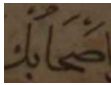 اضحابك